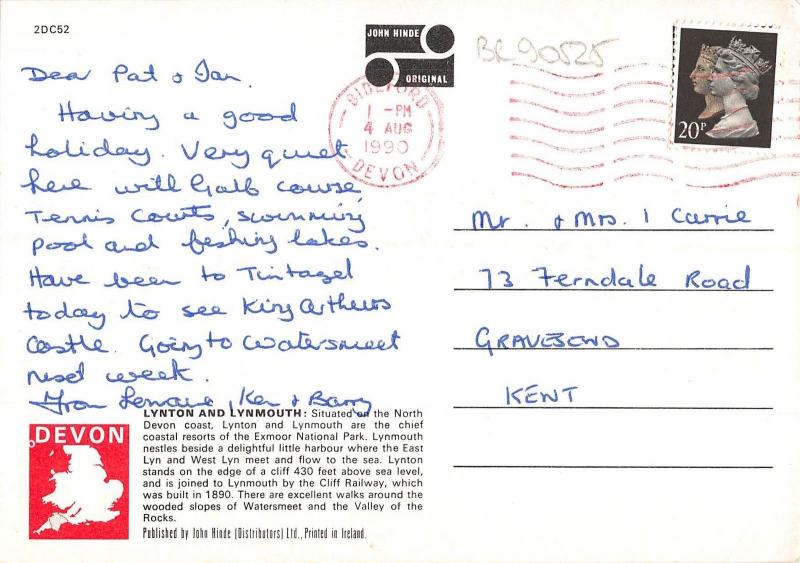 2DC52
JOHN HINDE
ORIGINAL
BR90525
BIDEFORD
1 - PM
4 AUG
1990
DEVON
20P
Dear Pat & Ian
Having a good
holiday. Very quiet
here with Galb course,
Tennis Courts, swimming
pool and fishing lakes.
Have been to Tintagel
today to see King Arthurs
Castle. Going to Watersmeet
next week.
From Lorraine, Ken & Barry
Mr. & Mrs. I Currie
73 Ferndale Road
GRAVESEND
KENT
DEVON
LYNTON AND LYNMOUTH: Situated on the North
Devon coast, Lynton and Lynmouth are the chief
coastal resorts of the Exmoor National Park. Lynmouth
nestles beside a delightful little harbour where the East
Lyn and West Lyn meet and flow to the sea. Lynton
stands on the edge of a cliff 430 feet above sea level,
and is joined to Lynmouth by the Cliff Railway, which
was built in 1890. There are excellent walks around the
wooded slopes of Watersmeet and the Valley of the
Rocks.
Published by John Hinde (Distributors) Ltd., Printed in Ireland.